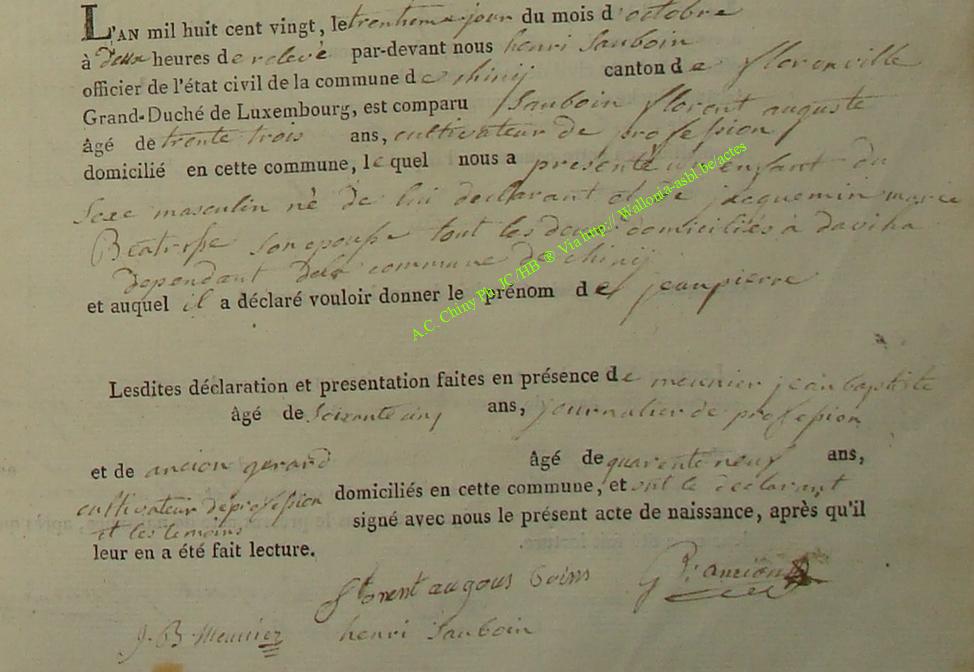 L'AN mil huit cent vingt, le trentieme jour du mois d'octobre
à deux heures de relevé par-devant nous henri Sauboin
officier de l'état civil de la commune de chinij canton de florenville
Grand-Duché de Luxembourg, est comparu Sauboin florent auguste
âgé de trente trois ans, cultivateur de profession
domicilié en cette commune, lequel nous a présenté un enfant du
Sexe masculin né de lui declarant et de jacquemin marie
Béatrisse son epousse tout les deux domiciliés à daviha
dependant dela commune de chinij
et auquel il a déclaré vouloir donner le prénom de jeanpierre
Lesdites déclaration et presentation faites en présence de meunier jean baptiste
âgé de soixante cinq ans, journalier de profession
et de ancion gerard âgé de quarente neuf ans,
cultivateur de profession domiciliés en cette commune, et ont le declarant
et les temoins signé avec nous le présent acte de naissance, après qu'il
leur en a été fait lecture.
florent augous boins Gr: ancion
J. B. Meunier henri Sauboin
A.C. Chiny Ph. IC /HB ® Via http:// Wallonia-asbl.be/actes